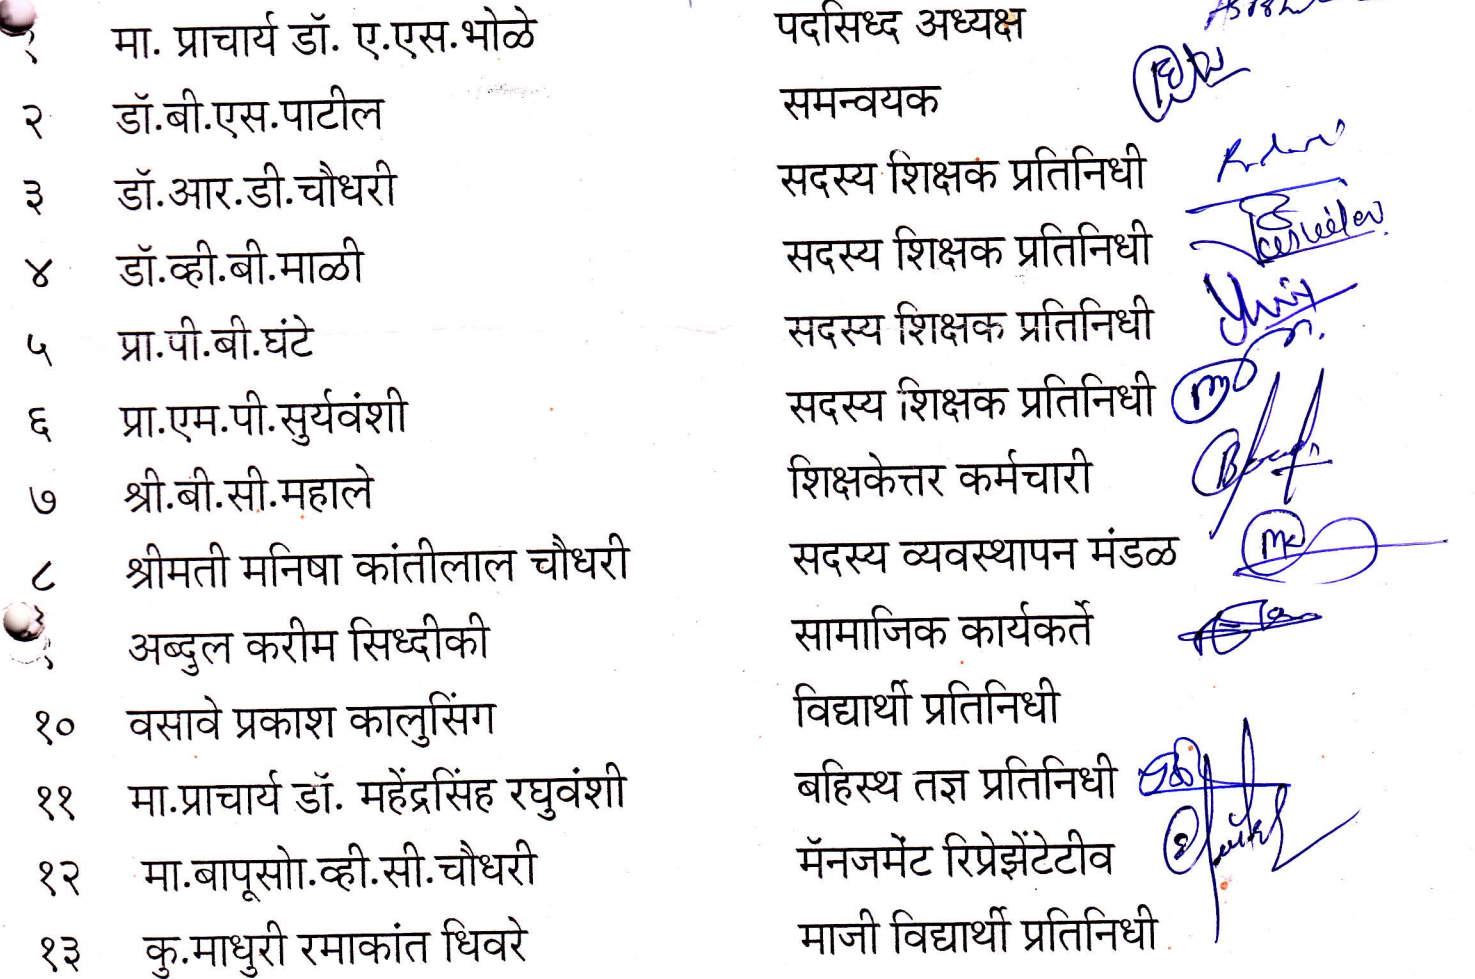 १ मा. प्राचार्य डॉ. ए.एस.भोळे पदसिध्द अध्यक्ष
२ डॉ.बी.एस.पाटील समन्वयक
३ डॉ.आर.डी.चौधरी सदस्य शिक्षक प्रतिनिधी
४ डॉ.व्ही.बी.माळी सदस्य शिक्षक प्रतिनिधी
५ प्रा.पी.बी.घंटे सदस्य शिक्षक प्रतिनिधी
६ प्रा.एम.पी.सुर्यवंशी सदस्य शिक्षक प्रतिनिधी
७ श्री.बी.सी.महाले शिक्षकेत्तर कर्मचारी
८ श्रीमती मनिषा कांतीलाल चौधरी सदस्य व्यवस्थापन मंडळ
अब्दुल करीम सिध्दीकी सामाजिक कार्यकर्ते
१० वसावे प्रकाश कालुसिंग विद्यार्थी प्रतिनिधी
११ मा.प्राचार्य डॉ. महेंद्रसिंह रघुवंशी बहिस्थ तज्ञ प्रतिनिधी
१२ मा.बापूसाो.व्ही.सी.चौधरी मॅनजमेंट रिप्रेझेंटेटीव
१३ कु.माधुरी रमाकांत धिवरे माजी विद्यार्थी प्रतिनिधी